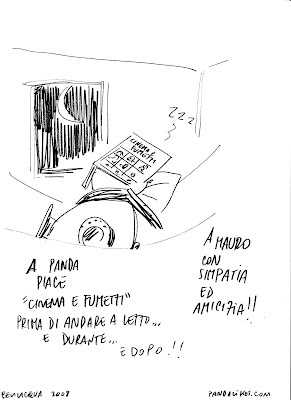 ZZZ
CINEMA
FUMETTI
A PANDA
PIACE
"CINEMA E FUMETTI"
PRIMA DI ANDARE A LETTO...
E DURANTE...
E DOPO!!
A MAURO
CON
SIMPATIA
ED
AMICIZIA!!
BEVILACQUA 2008
PANDALIKES.COM